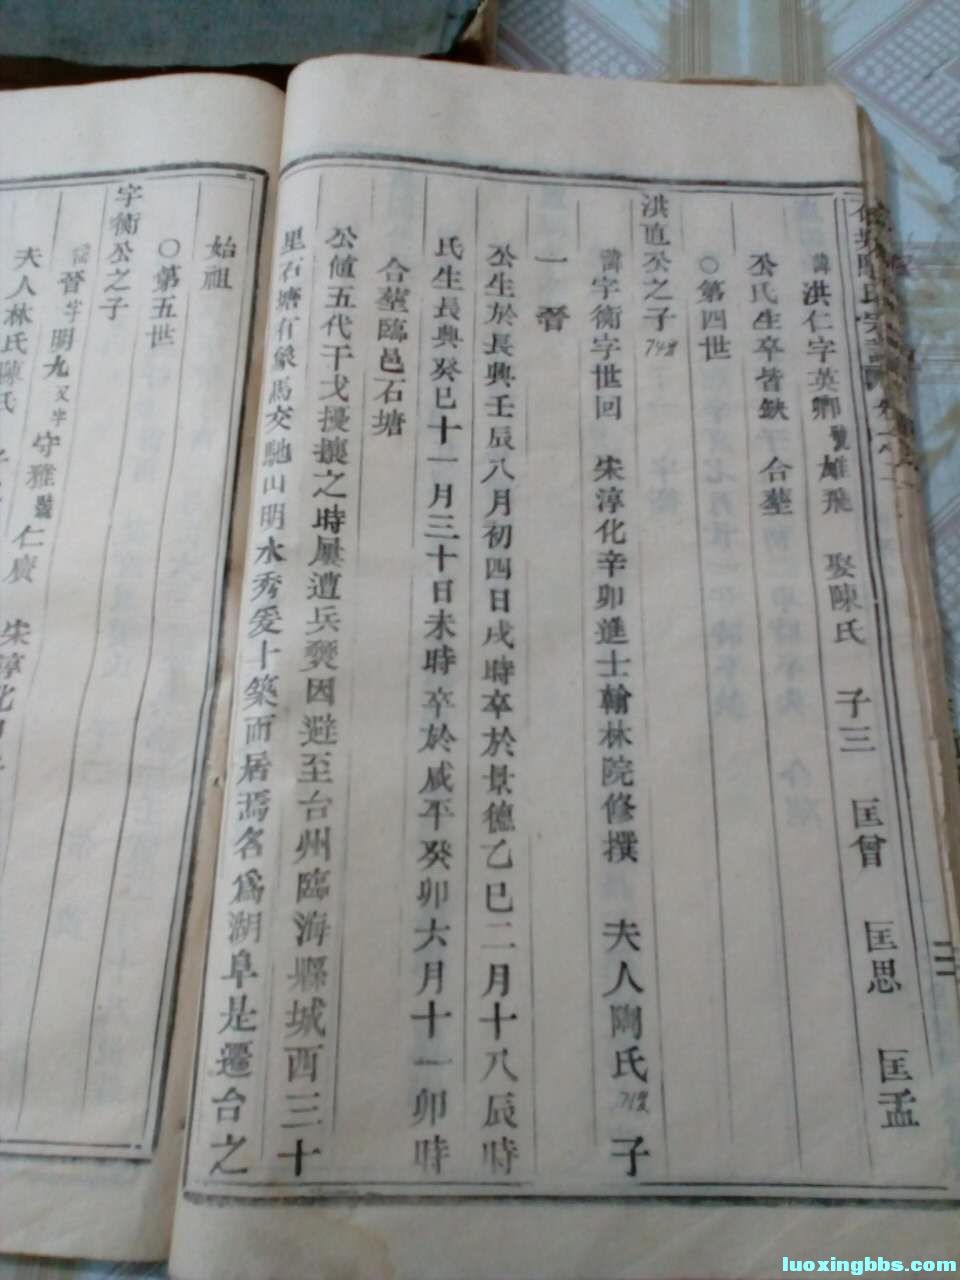 諱洪仁字英卿號雄飛 娶陳氏 子三 匡曾 匡思 匡孟
公氏生卒皆缺 合塟
○第四世
洪直公之子 74岁
諱字衡字世回 宋淳化辛卯進士翰林院修撰 夫人陶氏 71岁 子
一 晉
公生於長興壬辰八月初四日戌時卒於景德乙巳二月十八辰時
氏生長興癸巳十一月三十日未時卒於咸平癸卯六月十一卯時
合塟臨邑石塘
公値五代干戈擾攘之時屢遭兵燹因避至台州臨海縣城西三十
里石塘有象馬交馳山明水秀爰卜築而居焉名爲湖阜是遷台之
始祖
○第五世
字衡公之子
諱晉字明九又字守雅號仁廣 宋淳化
夫人林氏陳氏
luoxingbbs.com